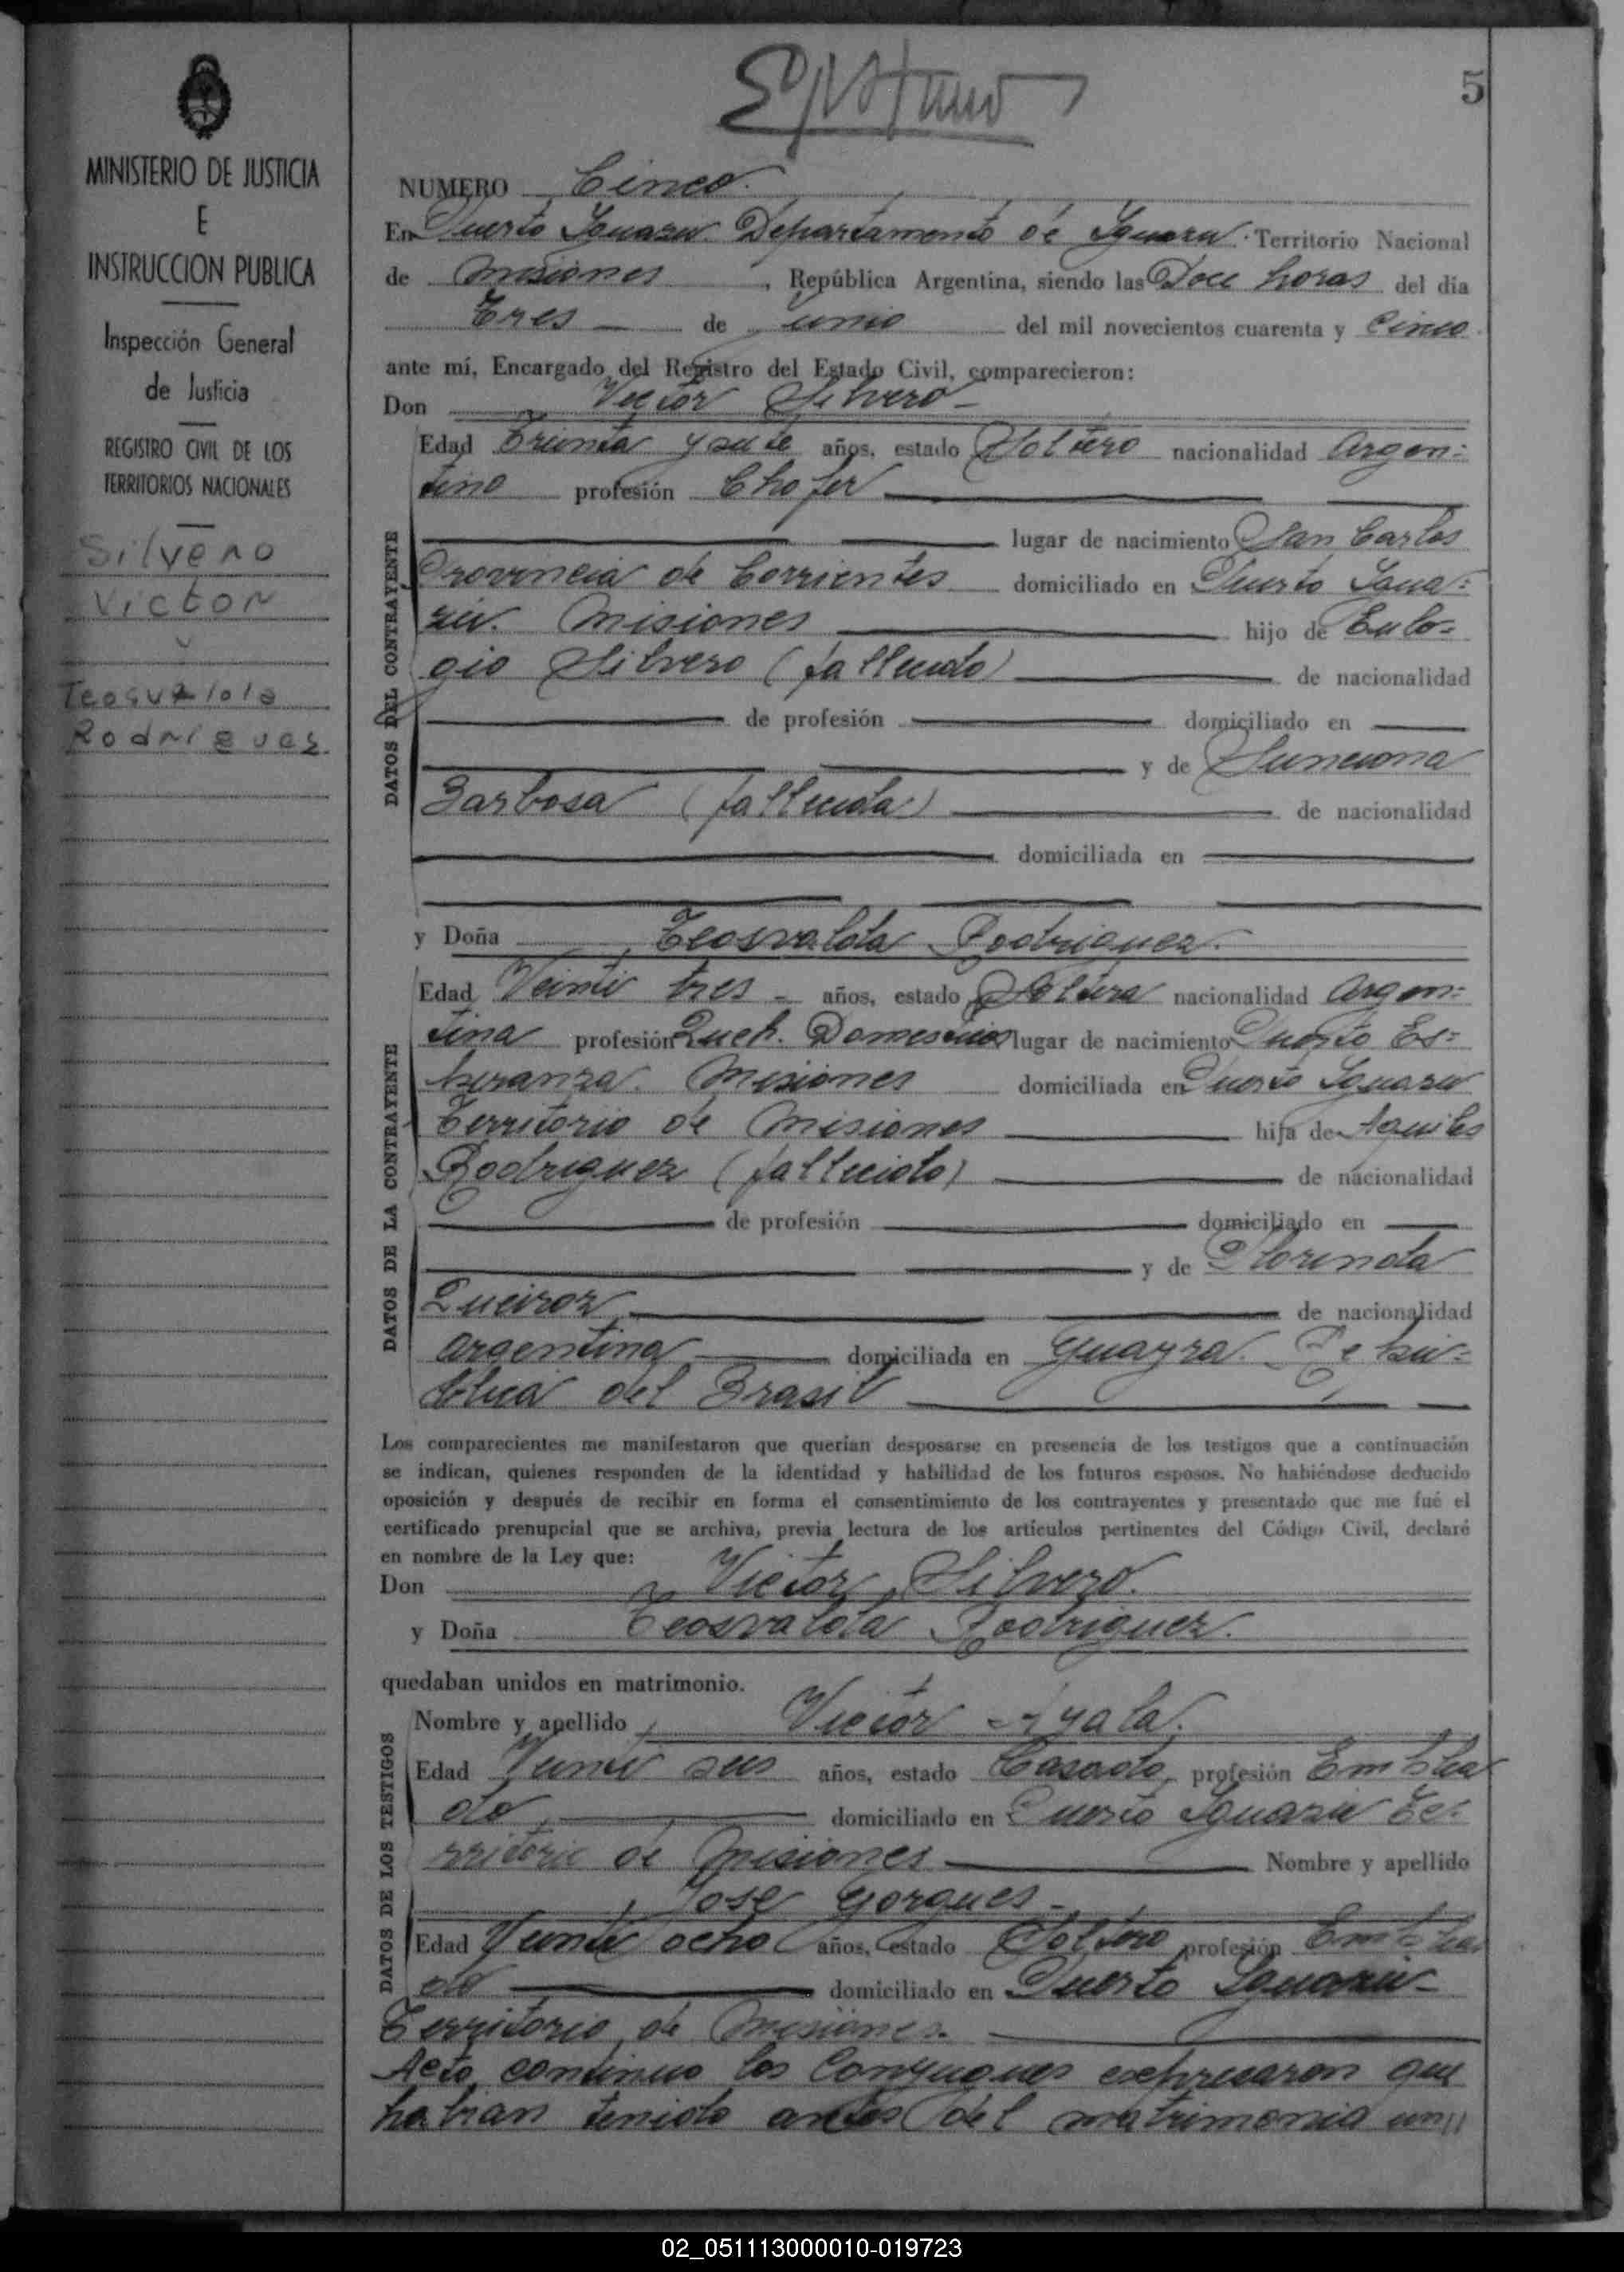 5
MINISTERIO DE JUSTICIA
E
INSTRUCCION PUBLICA
Inspección General
de Justicia
REGISTRO CIVIL DE LOS
TERRITORIOS NACIONALES
Silvero
Victor
y
Teosvalda
Rodriguez
NUMERO Cinco.
En Puerto Iguazu. Departamento de Iguazu. Territorio Nacional
de Misiones, República Argentina, siendo las Doce horas del dia
Tres de Junio del mil novecientos cuarenta y Cinco.
ante mí, Encargado del Registro del Estado Civil, comparecieron:
Don Victor Silvero
Edad Treinta y siete años, estado Soltero nacionalidad Argen=
tino profesión Chofer
lugar de nacimiento San Carlos
Provincia de Corrientes domiciliado en Puerto Igua=
zú. Misiones hijo de Eulo=
gio Silvero (fallecido) de nacionalidad
de profesión domiciliado en
y de Sunciona
Barbosa (fallecida) de nacionalidad
domiciliada en
DATOS DEL CONTRAYENTE
y Doña Teosvalda Rodriguez.
Edad Veinti tres años, estado Soltera nacionalidad Argen=
tina profesión Queh. Domesticos lugar de nacimiento Puerto Es=
peranza. Misiones domiciliada en Puerto Iguazu
Territorio de Misiones hija de Aquiles
Rodriguez (fallecido) de nacionalidad
de profesión domiciliado en
y de Florinda
Queiroz de nacionalidad
Argentina domiciliada en Guayra. Repú=
blica del Brasil
DATOS DE LA CONTRAYENTE
Los comparecientes me manifestaron que querían desposarse en presencia de los testigos que a continuación
se indican, quienes responden de la identidad y habilidad de los futuros esposos. No habiéndose deducido
oposición y después de recibir en forma el consentimiento de los contrayentes y presentado que me fué el
certificado prenupcial que se archiva, previa lectura de los artículos pertinentes del Código Civil, declaré
en nombre de la Ley que:
Don Victor Silvero.
y Doña Teosvalda Rodriguez.
quedaban unidos en matrimonio.
Nombre y apellido Victor Ayala.
Edad Veinti seis años, estado Casado, profesión Emplea
do domiciliado en Puerto Iguazú Te=
rritorio de Misiones Nombre y apellido
Jose Gorgues
Edad Veinti ocho años, estado Soltero profesión Emplea
do domiciliado en Puerto Iguazú
Territorio de Misiones.
DATOS DE LOS TESTIGOS
Acto continuo los Conyugues expresaron que
habian tenido antes del matrimonio un//
02_051113000010-019723